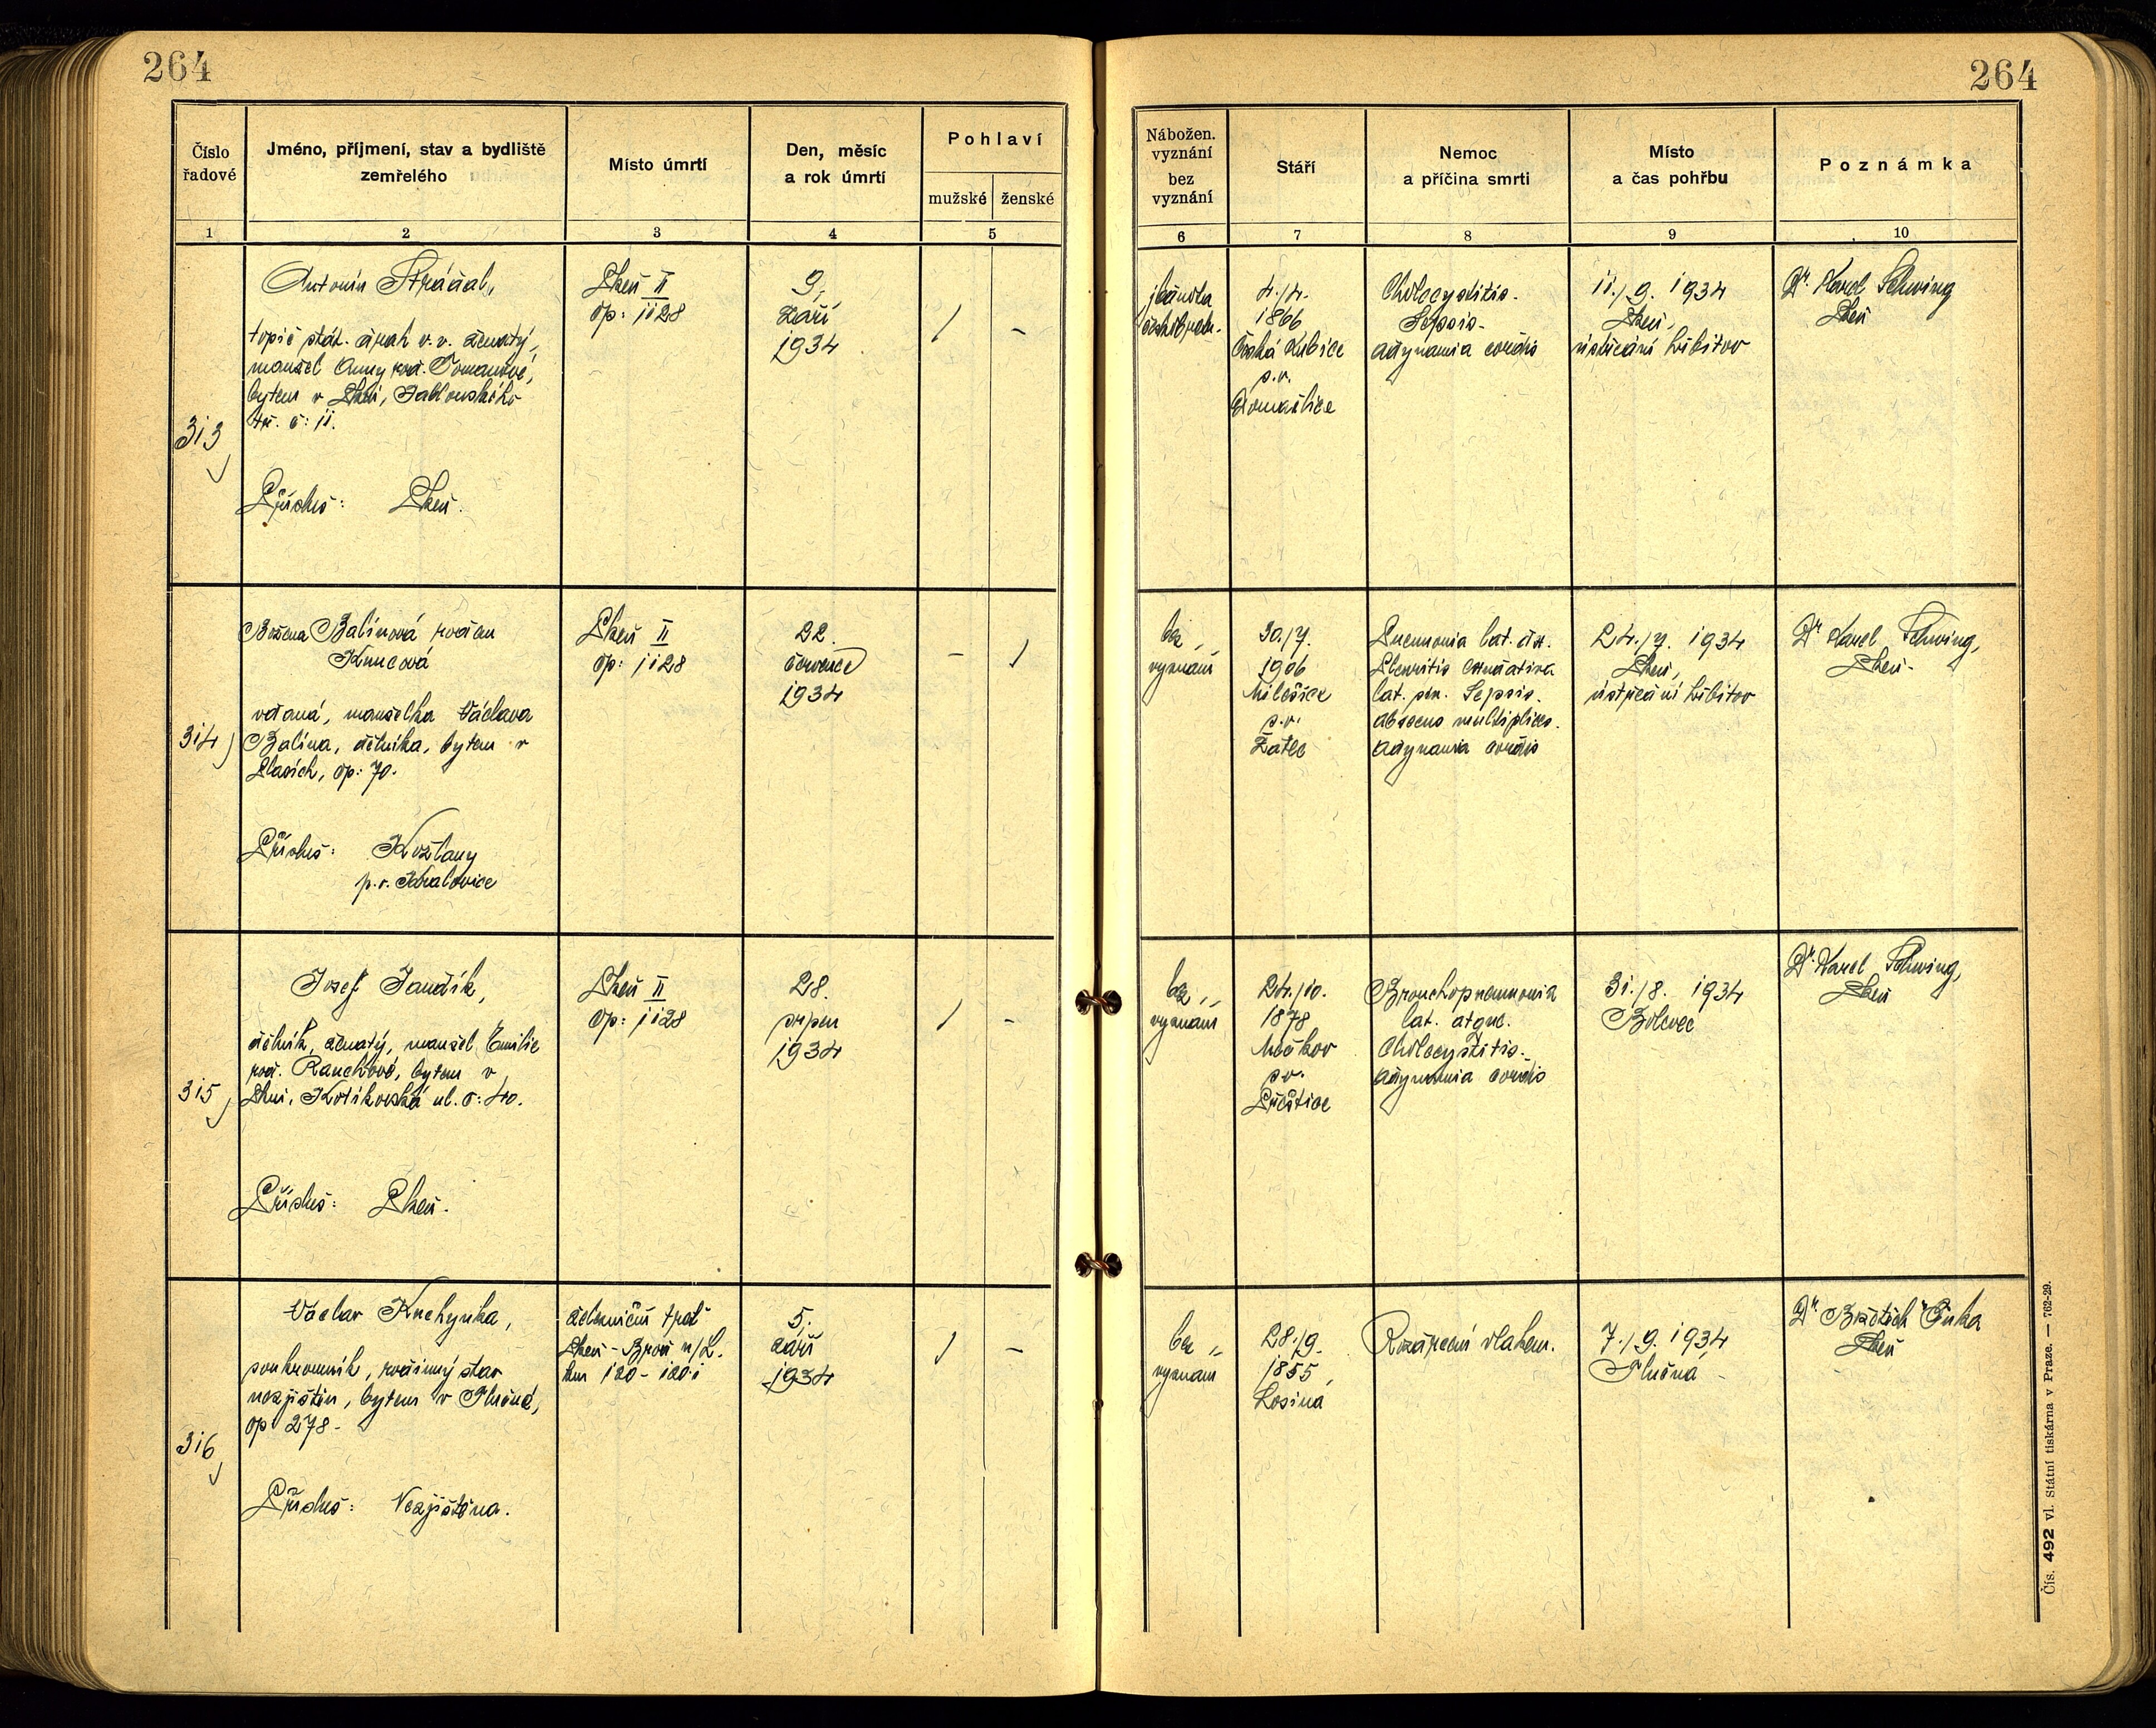 264
264
Číslo řadové
Jméno, příjmení, stav a bydliště zemřelého
Místo úmrtí
Den, měsíc a rok úmrtí
Pohlaví
mužské
ženské
Nábožen. vyznání
bez vyznání
Stáří
Nemoc a příčina smrti
Místo a čas pohřbu
Poznámka
1
2
3
4
5
6
7
8
9
10
313
Antonín
topič stát. drah v. v. ženatý,
manžel Anny roz. Tomanové,
bytem v Plzni, Jablonského
tř. č: 11.
Přísluš: Plzeň.
Plzeň II
čp: 1128
9.
září
1934
/
-
4./4.
1866
Česká Kubice
p. v.
Domažlice
Cholecystitis.
Sepsis-
adynamia cordis
11./9. 1934
Plzeň,
ústřední hřbitov
Dr. Karel Schwing
Plzeň
314
Božena Balínová rozen
vdaná, manželka Václava
Balína, dělníka, bytem v
čp: 70.
Přísluš: Kožlany
p. v. Kralovice
Plzeň II
čp: 1128
22.
července
1934
-
/
bez
vyznání
30./7.
1906
Milešice
p. v.
Žatec
Pneumonia lat. dx.
Pleuritis exsudativa
lat. sin. Sepsis.
abscens multiplices.
adynamia cordis
24./7. 1934
Plzeň,
ústřední hřbitov
Dr Karel Schwing,
Plzeň.
315
Josef Jandík,
dělník, ženatý, manžel Emilie
roz. Rauchové, bytem v
Plzni, Kotíkovská ul. č: 40.
Přísluš: Plzeň.
Plzeň II
čp: 1128
28.
srpen
1934
/
-
bez
vyznání
24./10.
1878
p. v.
Přeštice
Bronchopneumonia
lat. utque.
Cholecystitis.
adynamia cordis
31./8. 1934
Bolevec
Dr. Karel Schwing,
Plzeň
316
Václav Kuchynka,
soukromník, rodinný stav
nezjištěn, bytem v Tlučné,
čp 278-
Přísluš: Nezjištěna.
železniční trať
Plzeň - Brod n/L.
km 120 - 120.1
5.
září
1934
/
-
bez
vyznání
28./9.
1855,
Losiná
Rozdrcení vlakem.
7./9. 1934,
Tlučná-
Plzeň
Čís. 492 vl. Státní tiskárna v Praze. — 762-29.